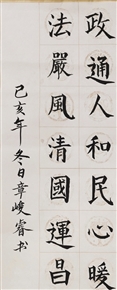 政通人和民心暖
法嚴風清國運昌
己亥年冬日章峻睿书